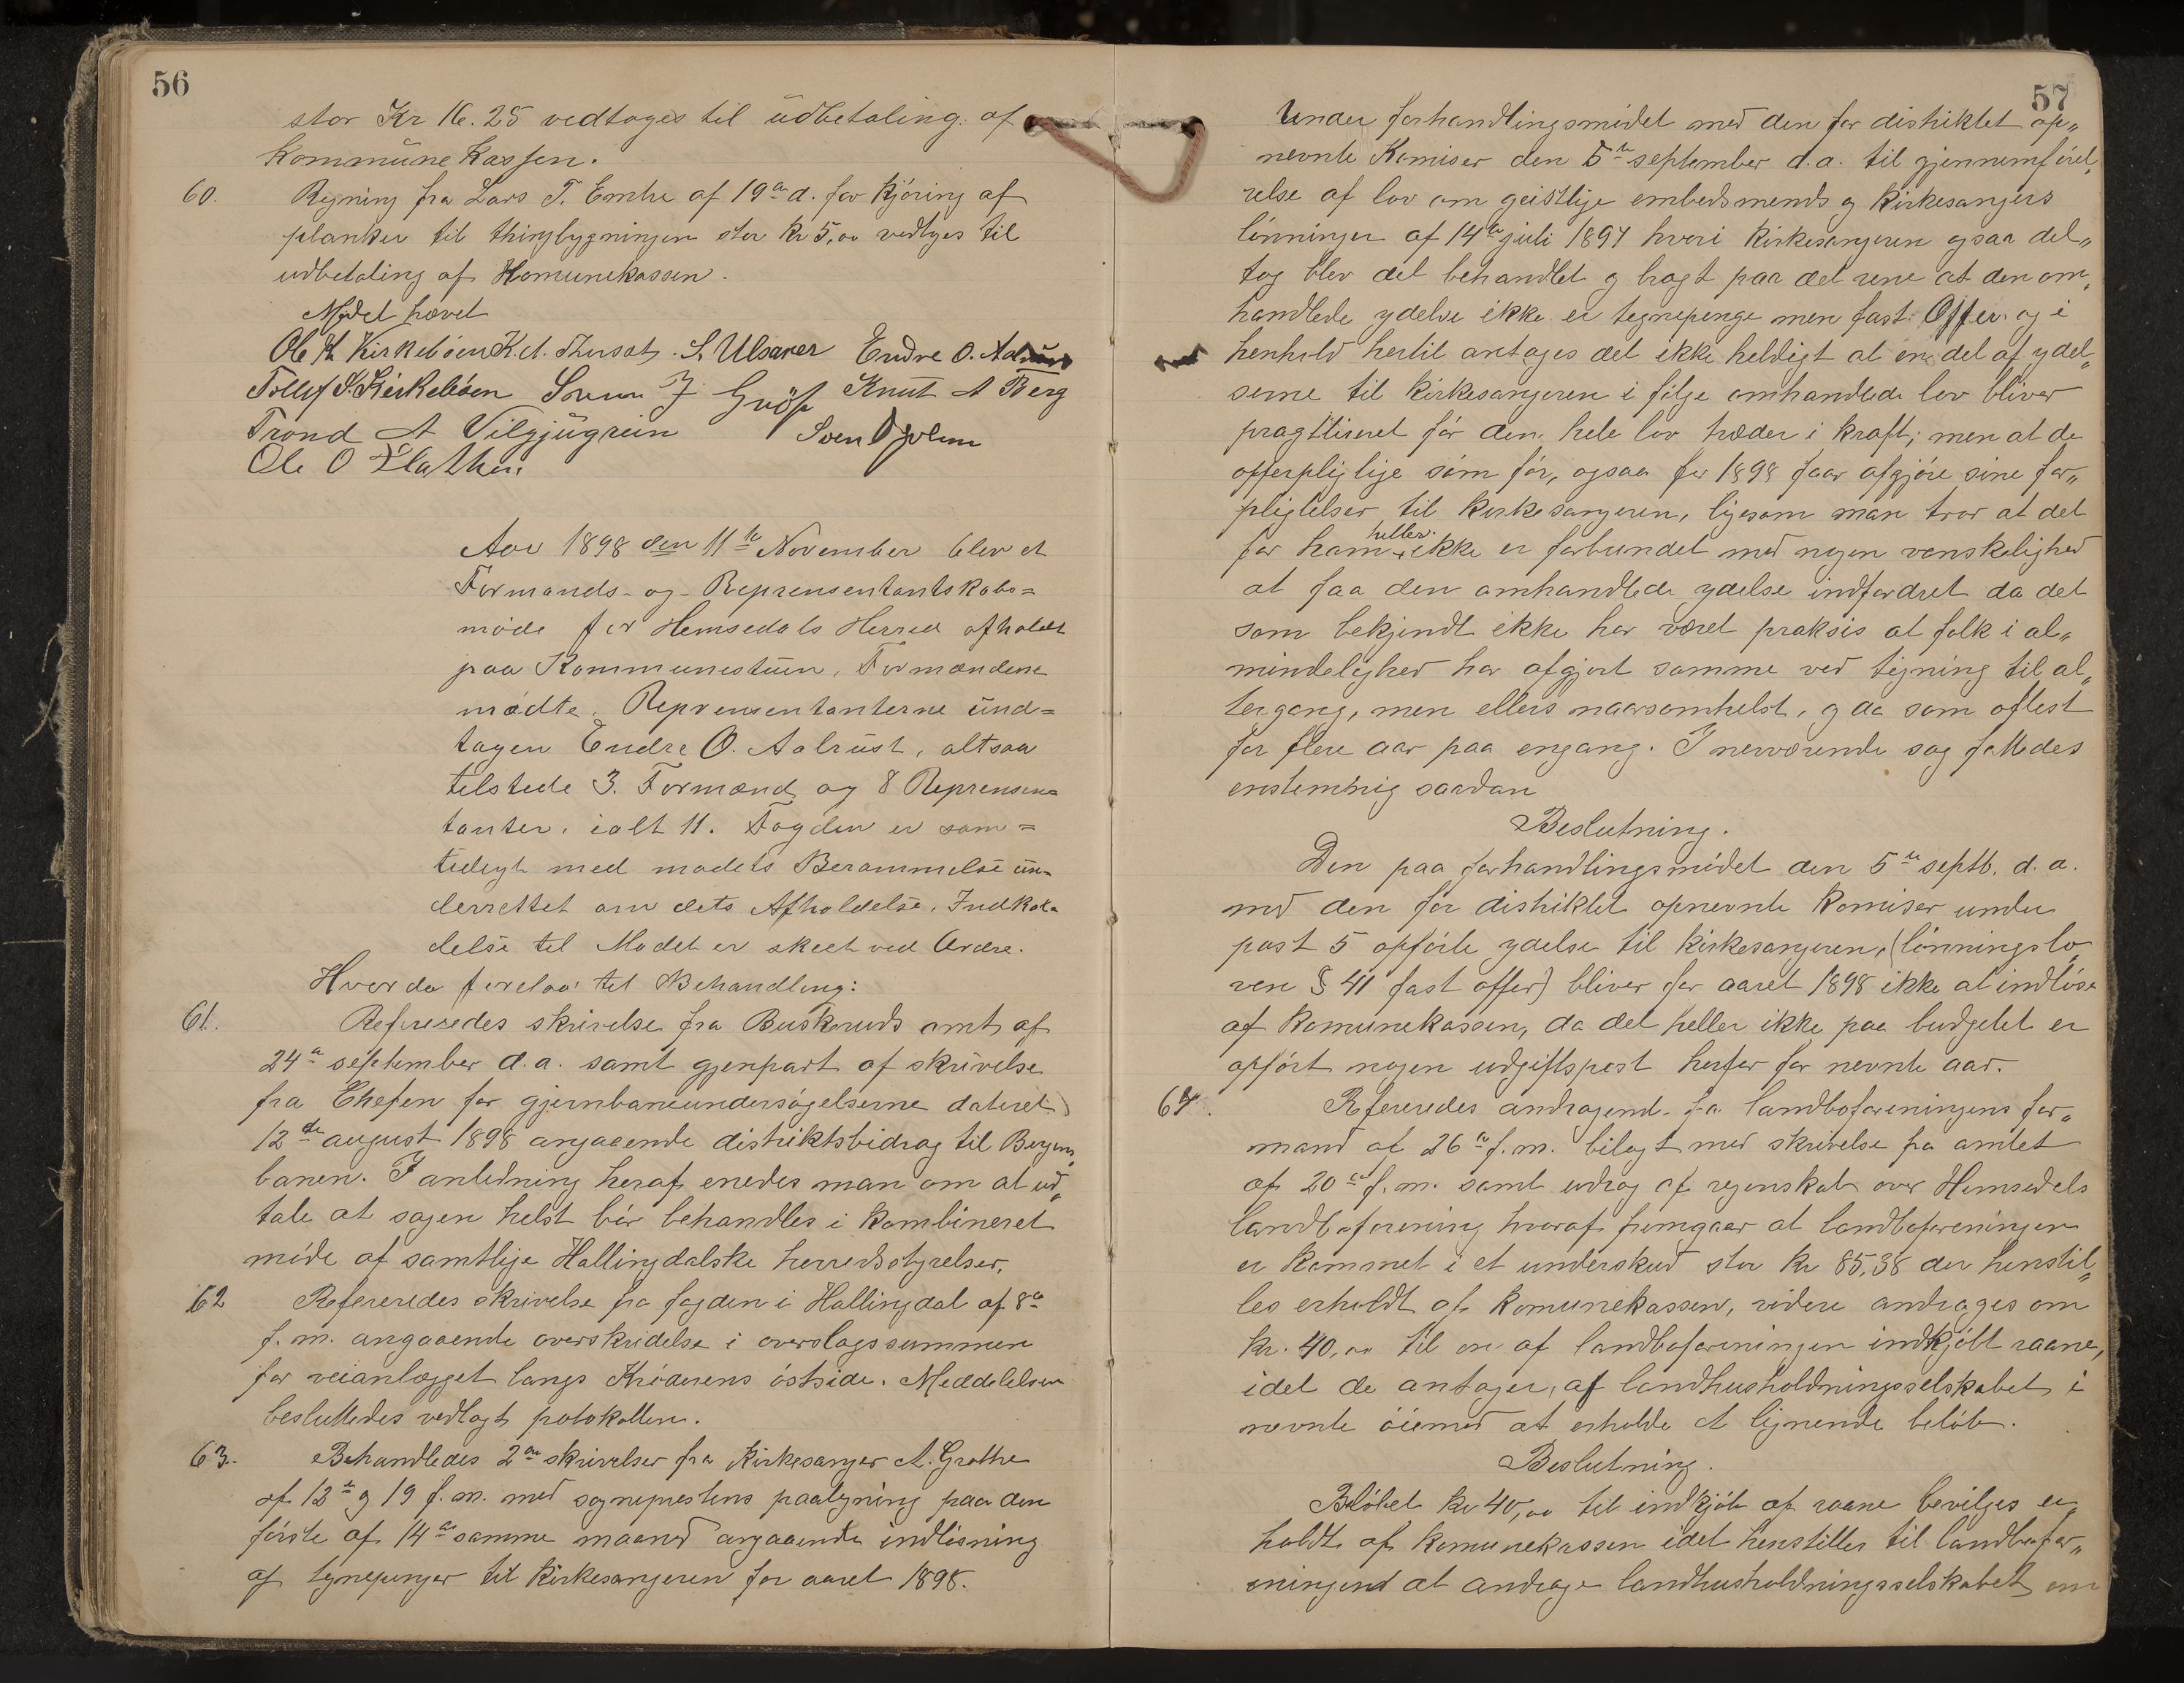 56
stor Kr 16.25 vedtoges til üdbetaling af
kommüne kassen.
60. Regning fra Lars T. Embre af 19de d. for kjöring af
planker til thingbygningen stor kr 5,00 vedtges til
udbetaling af Komunekassen.
Mødet hævet
Ole K Kirkebøen K. A. Thusat. S. Ulsaker Endre O. Aalrüst
Tollef S. Kirkebøen Svenn J Gröf Knut A Berg
Trond A Vilgjügrein Sven O Jolem
Ole O Flaten
Aar 1898 den 11te November blev et
Formands- og Reprensentantskabs=
møde for Hemsedals Herred afholdt
paa Kommunestüen. Formændene
mødte. Reprensentanterne ünd=
tagen Endre O. Aalrüst, altsaa
tilstede 3. Formænd og 8 Reprensen=
tanter. ialt 11. Fogden er sam=
tidigt med mødets Berammelse ün=
derrettet om dets Afholdelse. Indkal=
delse til Mødet er skeet ved Ordre.
Hvorda forelaa til Behandling:
61. Refereredes skrivelse fra Buskeruds amt af
24de september d.a. samt gjenpart af skrivelse
fra Chefen for gjernbaneundersøgelserne dateret
12de august 1898 angaaende distriktsbidrag til Bergens„
banen. I anledning heraf enedes man om at ud„
tale at sagen helst bör behandles i kombineret
möde af samtlige Hallingdalske herredsstyrelser.
62 Refereredes skrivelse fra fogden i Hallingdal af 8de
f.m. angaaende overskridelse i overslagssummen
for veianlægget langs Kröderens östside. Meddelelsen
besluttedes vedlagt protokollen.
63. Behandledes 2de skrivelser fra Kirkesanger A. Grøthe
af 12te og 19 f.m. med sogneprestens paategning paa den
förste af 14de samme maaned angaaende indlösning
af tegnepenger til Kirkesangeren for aaret 1898.
57
Under forhandlingsmödet med den for distriktet op„
nevnte Komiser den 5te september d.a. til gjennemförel„
relse af lov om geistlige embedsmends og kirkesangers
lönninger af 14de juli 1897 hvori kirkesangeren ogsaa del„
tog blev det behandlet og bragt paa det rene at den om„
handlede ydelse ikke er tegnepenge men fast Offer og i
henhold hertil antages det ikke heldigt at en del af ydel„
serne til kirkesangeren i fölge omhandlede lov bliver
pragttiseret för den hele lov træder i kraft; men at de
offerpligtige som för, ogsaa for 1898 faar afgjöre sine for„
pligtelser til kirkesangeren, ligesom man tror at det
for ham heller ikke er forbundet med nogen vanskelighed
at faa den omhandlede ydelse indfordret da det
som bekjendt ikke har været praksis at folk i al„
mindelighed har afgjort samme ved tegning til al„
tergang, men ellers naarsomhelst, og da som oftest
for flere aar paa engang. I nerværende sag fattedes
enstemmig saadan
Beslutning.
Den paa forhandlingsmödet den 5te septb. d. a.
med den for distriktet opnevnte komiser under
post 5 opförte ydelse til kirkesangeren, (lönningslo„
ven § 41 fast offer) bliver for aaret 1898 ikke at indlöse
af komunekassen, da det heller ikke paa budgetet er
opfört nogen udgiftspost herfor for nevnte aar.
64. Refereredes andragende fra landboforeningens for„
mand af 26de f.m. bilagt med skrivelse fra amtet
af 20de f.m. samt udrag af regnskab over Hemsedals
landboforening hvoraf fremgaar at landboforeningen
er kommet i et underskud stor kr 85,38 der henstil„
les erholdt af komunekassen, videre andrages om
kr. 40,00 til en af landboforeningen indkjöbt raane,
idet de antager, af landhusholdningsselskabet i
nevnte öiemed at erholde et lignende belöb.
Beslutning.
Belöbet kr 40,00 til indkjöb af raane bevilges er„
holdt af komunekassen idet henstilles til landbofor„
eningens at andrage landhusholdningsselskabet om